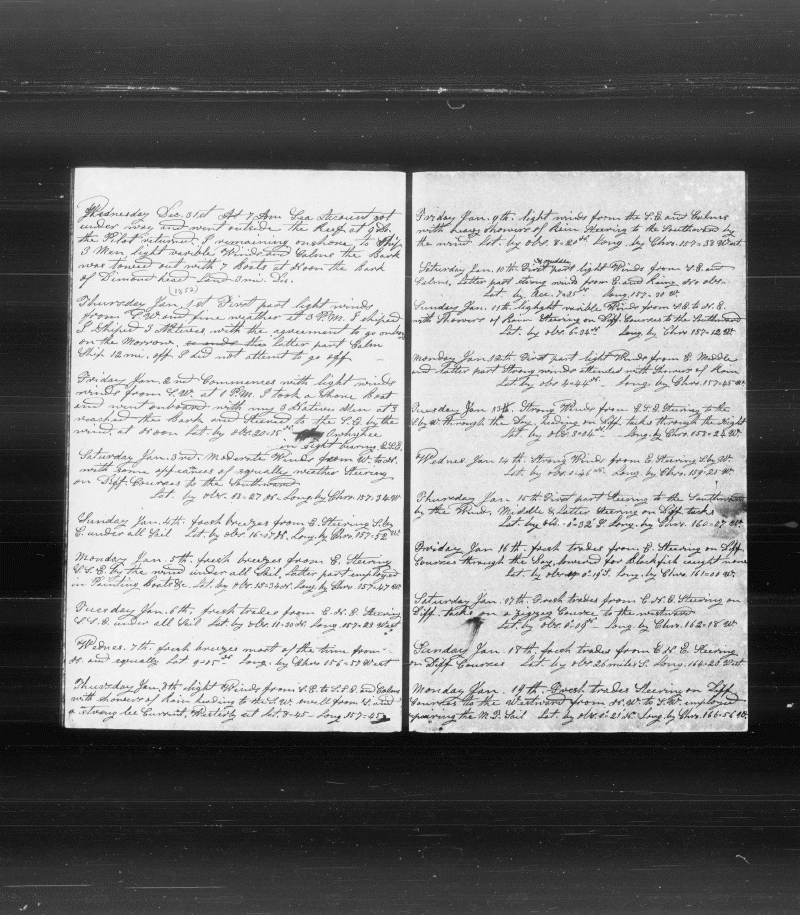 Wednesday Dec. 31st At 7 Am Sea Account got
under way and went outside the Reef at 9 do.
the Pilot returned. I remaining on shore to Ship
3 Men light varible Winds and Calms the Bark
was towed out with 7 Boats at Noon the Bark
of Dimond head Land 3 mi. Dis.
(1852)
Thursday Jan. 1st First part light winds
from S.W. and fine weather at 3 P.M. I shiped
I Shiped 3 Natives, with the agreement to go on board
on the Morrow. this latter part Calm
Ship 12 mi. off I did not attent to go off
Friday Jan. 2nd Commences with light winds
winds from S.W. at 1 P.M. I took a Shore Boat
and went onboard with my 3 Native Men at 3
reached the Bark and Steered to the S.E. by the
wind, at Noon Lat by obs. 20-15 N. Owhyhee
in sight bearing
Saturday Jan. 3rd. Moderate Winds from W. to N.
with some appeances of squally weather Steering
on Diff. Courses to the Southward
Lat. by obs. 18-27 N. Long. by Chro. 157-34 W.
Sunday Jan. 4th. fresh breezes from E. Steering S. by
E. under all Sail Lat. by obs. Long. by Chro. 157-52 W.
Monday Jan. 5th. fresh breezes from E. Steering
by the wind under all Sail, Latter part employed
in Painting Boats &c. Lat. by obs. 13-34 N. Long by Chro. 157-47 W.
Tuesday Jan. 6th. fresh trades from E.N.E. Steering
S.S.E. under all Sail Lat by obs 11-30 N. Long by Chro. 157-23 West
Wednes. 7th. fresh breezes most of the time from
N. and squally Lat 9-15 N. Long. by Chro 156-57 West
Thursday Jan. 8th. light Winds from S.E. to S.S.E. and Calms
with showers of Rain heading to the S.W. swell from and
a strong lee Current, Westerly set Lat. 8-45 - Long. 157-45
Friday Jan. 9th. light winds from the S.E. and Calms
with heavy Showers of Rain Steering to the Southward by
the wind Lat. by obs. 8-20 N. Long. by Chro. 157-38 West
Saturday Jan. 10th First part light Winds from S.E. and
Calms, Latter part strong winds from E. and Rainy no obs.
Lat. by Acc. 7-25 N. Long. 157-30 W.
Sunday Jan. 11th. light varible Winds from S.E. to N.E.
with Showers of Rain Steering on Diff. Courses to the Southward
Lat. by obs. 6-24 N. Long by Chro. 157-12 W.
Monday Jan. 12th. First part light Winds from E. Middle
and latter part strong winds attended with Showers of Rain
Lat. by obs 4-44 N. Long. by Chro. 157-45 W.
Tuesday Jan. 13th. Strong Winds from E.S.E. Steering to the
S. by W. through the Day, heading on Diff. tacks through the Night
Lat. by obs. Long. by Chro. 158-24 W.
Wednes. Jan. 14th. Strong Winds from E. Steering S. by W.
Lat. by obs. 1-46 N. Long. by Chro. 159-25 W.
Thursday Jan 15th First part Steering to the Southward
by the Wind, Middle & Latter Steering on Diff tacks
Lat. by obs. 0-32 S. Long. by Chro. 160-07 W.
Friday Jan 16th. fresh trades from E. Steering on Diff.
Courses through the Day, lowered for Blackfish caught none
Lat. by obs. 0-19 S. Long. by Chro. 161-00 W.
Saturday Jan. 17th. Fresh trades from E.N.E. Steering on
Diff. tacks on a zigzag Course to the westward
Lat. by obs. Long. by Chro. 162-18 W.
Sunday Jan. 18th. fresh trades from E.N.E. Steering
on Diff Courses Lat by obs 28 miles S. Long. 164-28 West
Monday Jan. 19th. Fresh trades Steering on Diff
Courses to the Westward from N.W. to S.W. employed
repairing the M.T. Sail Lat. by obs. 0-21 N. Long. by Chro. 166-56 W.